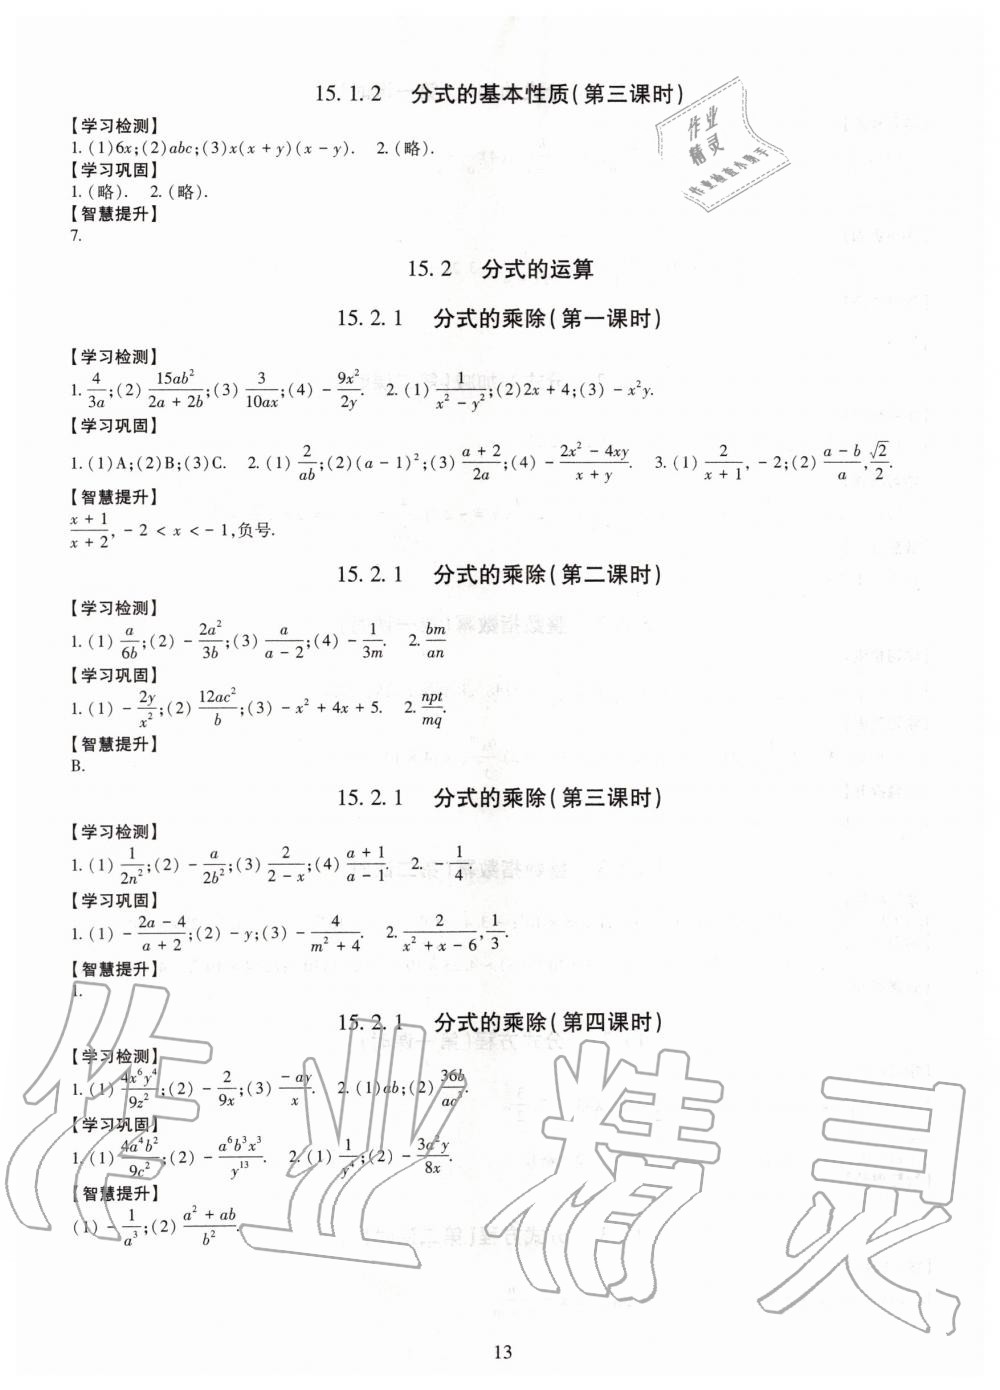 15. 1. 2 分式的基本性质(第三课时)
作业
精灵
作业检查小助手
【学习检测】
1. (1)6x;(2)abc;(3)x(x + y)(x - y). 2. (略).
【学习巩固】
1. (略). 2. (略).
【智慧提升】
7.
15. 2 分式的运算
15. 2. 1 分式的乘除(第一课时)
【学习检测】
1. 4/3a;(2) 15ab²/(2a + 2b);(3) 3/10ax;(4) - 9x²/2y. 2. (1) 1/(x² - y²);(2)2x + 4;(3) - x²y.
【学习巩固】
1. (1)A;(2)B;(3)C. 2. (1) 2/ab;(2)(a - 1)²;(3) (a + 2)/2a;(4) - (2x² - 4xy)/(x + y). 3. (1) 2/(x + 1), - 2;(2) (a - b)/a, √2/2.
【智慧提升】
(x + 1)/(x + 2), - 2 < x < - 1,负号.
15. 2. 1 分式的乘除(第二课时)
【学习检测】
1. (1) a/6b;(2) - 2a²/3b;(3) a/(a - 2);(4) - 1/3m. 2. bm/an
【学习巩固】
1. (1) - 2y/x²;(2) 12ac²/b;(3) - x² + 4x + 5. 2. npt/mq.
【智慧提升】
B.
15. 2. 1 分式的乘除(第三课时)
【学习检测】
1. (1) 1/2n²;(2) - a/2b²;(3) 2/(2 - x);(4) (a + 1)/(a - 1). 2. - 1/4.
【学习巩固】
1. (1) - (2a - 4)/(a + 2);(2) - y;(3) - 4/(m² + 4). 2. 2/(x² + x - 6), 1/3.
【智慧提升】
1.
15. 2. 1 分式的乘除(第四课时)
【学习检测】
1. (1) 4x⁶y⁴/9z²;(2) - 2/9x;(3) - ay/x. 2. (1)ab;(2) 36b/ac³.
【学习巩固】
1. (1) 4a⁴b²/9c²;(2) - a⁶b³x³/y¹³. 2. (1) 1/y⁴;(2) - 3a²y/8x.
【智慧提升】
(1) - 1/a³;(2) (a² + ab)/b².
作业精灵
13